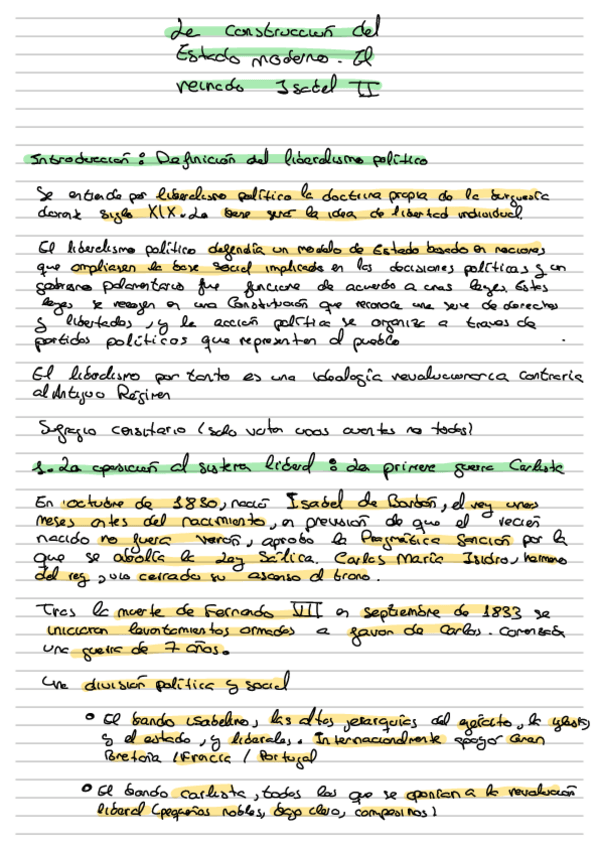 La construcción del
Estado moderno. El
reinado Isabel II
Introducción: Definición del liberalismo político
Se entiende por liberalismo político la doctrina propia de la burguesía
durante siglo XIX. La base será la idea de libertad individual
El liberalismo político defendía un modelo de Estado basado en naciones
que ampliasen la base social implicada en las decisiones políticas y un
gobierno parlamentario que funcione de acuerdo a unas leyes. Estas
leyes se recogen en una Constitución que reconoce una serie de derechos
y libertades, y la acción política se organiza a traves de
partidos políticos que representen al pueblo
El liberalismo por tanto es una ideología revolucionaria contraria
al Antiguo Régimen
Sufragio censitario (solo votan unos cuantos no todos)
1. La oposición al sistema liberal: la primera guerra Carlista
En octubre de 1830, nació Isabel de Borbón, el rey unos
meses antes del nacimiento, en prevision de que el recién
nacido no fuera varón, aprobo la Pragmática Sanción por la
que se abolía la Ley Sálica. Carlos María Isidro, hermano
del rey, vio cerrado su ascenso al trono.
Tras la muerte de Fernando VII en septiembre de 1833 se
iniciaron levantamientos armados a favor de Carlos. Comenzaba
una guerra de 7 años.
Una división política y social
• El bando isabelino, las altas jerarquías del ejército, la iglesia
y el estado, y liberales. Internacionalmente apoyo Gran
Bretaña / Francia / Portugal
• El bando carlista, todos los que se oponían a la revolución
liberal (pequeños nobles, bajo clero, campesinos)